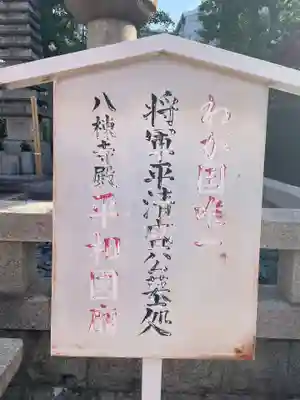 わが国唯一
将軍平清盛公墓処
八棟寺殿 平相国廟